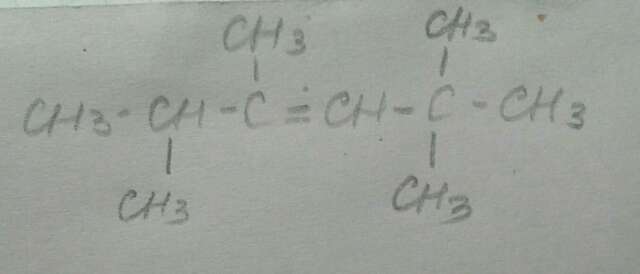 CH3 CH3
CH3-CH-C=CH-C-CH3
CH3 CH3